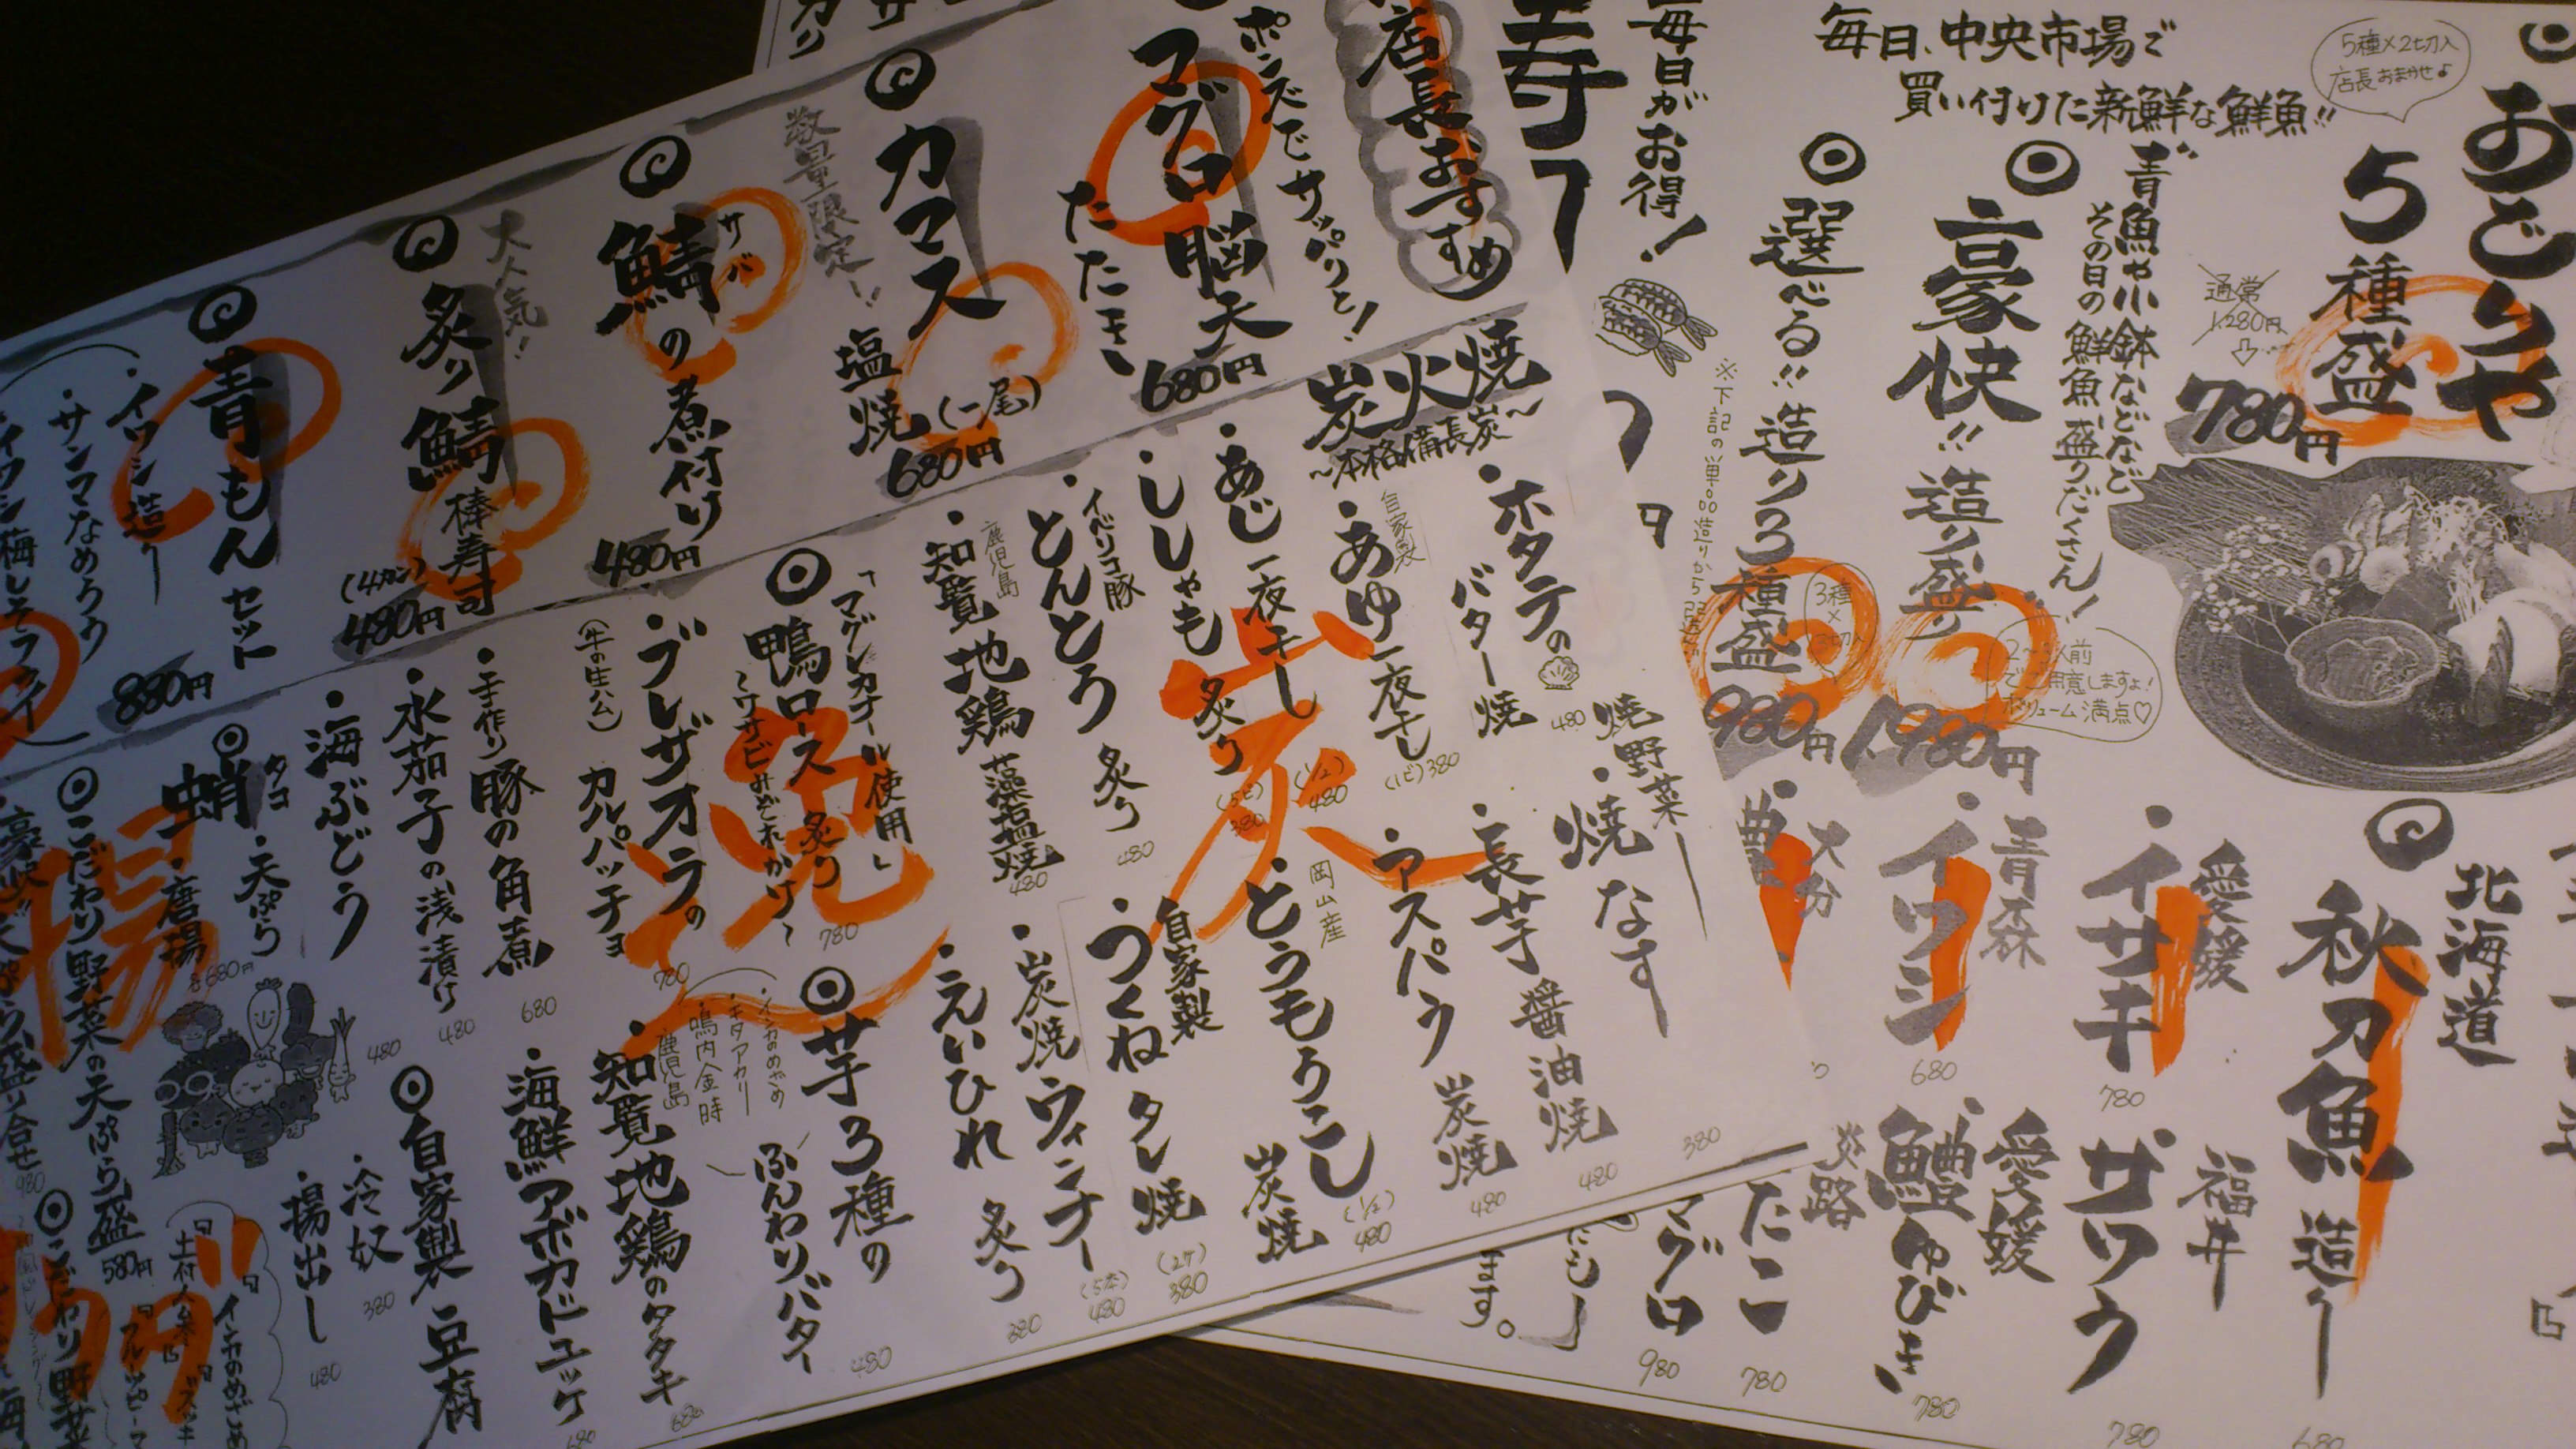 おどりや
5種盛
5種×2切入
店長おまかせ♪
通常
1,280円
780円
毎日、中央市場で
買い付けた新鮮な鮮魚!!
青魚や小鉢などなど
その日の鮮魚盛りだくさん!
豪快!!造り盛り
1,980円
2〜3人前
でご用意しますよ!
ボリューム満点♡
選べる!!造り3種盛
3種
×
3切入
980円
毎日がお得!
北海道
秋刀魚造り
680
愛媛
イサキ
780
福井
サワラ
780
青森
イワシ
680
愛媛
鱧ゆびき
780
大分
淡路
たこ
780
マグロ
980
ます。
店長おすすめ
ポンズでサッパリと!
マグロ脳天
たたき
680円
カマス
塩焼(一尾)
680円
数量限定!!
サバ
鯖の煮付け
480円
大人気!
炙り鯖棒寿司
(4カン)
480円
青もんセット
880円
・イワシ造り
・サンマなめろう
・イワシ梅しそフライ
炭火焼
〜本格備長炭〜
・ホタテの
バター焼
480
自家製
・あゆ一夜干し
(1ピ) 380
・あじ一夜干し
(1/2)
480
・ししゃも炙り
(5ピ)
380
イベリコ豚
・とんとろ炙り
480
鹿児島
・知覧地鶏藻塩焼
480
炭
焼野菜
・焼なす
380
・長芋醤油焼
480
・アスパラ炭焼
480
岡山産
・とうもろこし炭焼
(1/2)
480
自家製
・つくねタレ焼
(2ケ)
380
・炭焼ウィンナー
(5本)
480
・えいひれ炙り
380
逸
「マグレカナール使用」
鴨ロース炙り
〜ワサビみぞれかけ〜
780
・ブレザオラの
カルパッチョ
(牛の生ハム)
780
・手作り豚の角煮
680
・水茄子の浅漬け
480
・海ぶどう
480
芋3種の
ふんわりバター
480
・インカのめざめ
・キタアカリ
・鳴内金時
鹿児島
・知覧地鶏のタタキ
680
・海鮮アボカドユッケ
680
自家製豆腐
・冷奴
380
・揚出し
480
揚
タコ
蛸
・天ぷら
・唐揚
各680円
こだわり野菜の天ぷら盛
580円
豪快!!天ぷら盛り合せ
980
こだわり野菜
「インカのめざめ